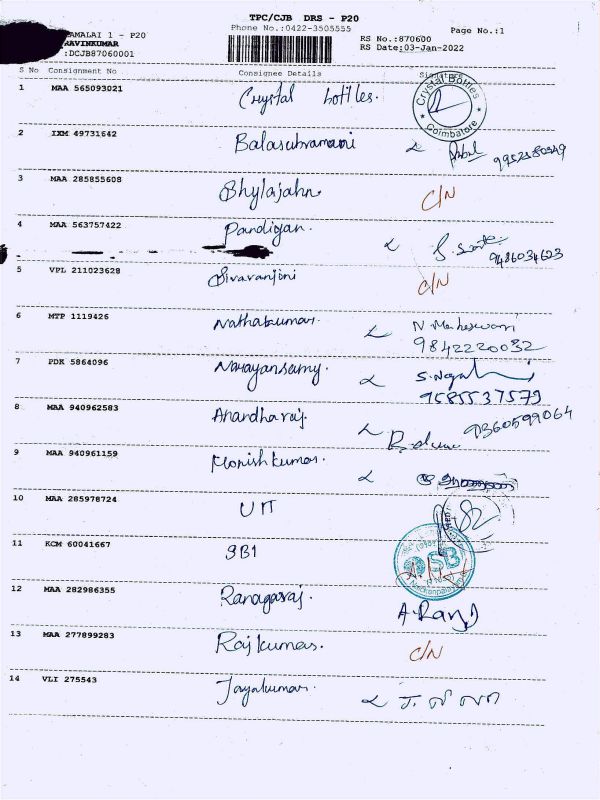 TPC/CJB DRS - P20
AMALAI 1 - P20
Phone No.:0422-3505555
Page No.:1
RAVINKUMAR
RS No.:870600
:DCJB87060001
RS Date:03-Jan-2022
S No Consignment No Consignee Details Signature
1 MAA 565093021 Crystal bottles.
Crystal Bottles
Coimbatore
2 IXM 49731642 Balasubramani
3 MAA 285855608 Bhylajahn C/N
4 MAA 563757422 Pandiyan.
9486034623
5 VPL 211023628 Sivaranjini C/N
6 MTP 1119426 Nathakumar. N. Maheswari
9842220032
7 PDK 5864096 Narayansamy.
9585537579
8 MAA 940962583 Anandharaj 9360599064
9 MAA 940961159 Monishkumar.
10 MAA 285978724 UIT
11 KCM 60041667 SBI
12 MAA 282986355 Ranagaraj.
13 MAA 277899283 Rajkumar. C/N
14 VLI 275543 Jayakumar.